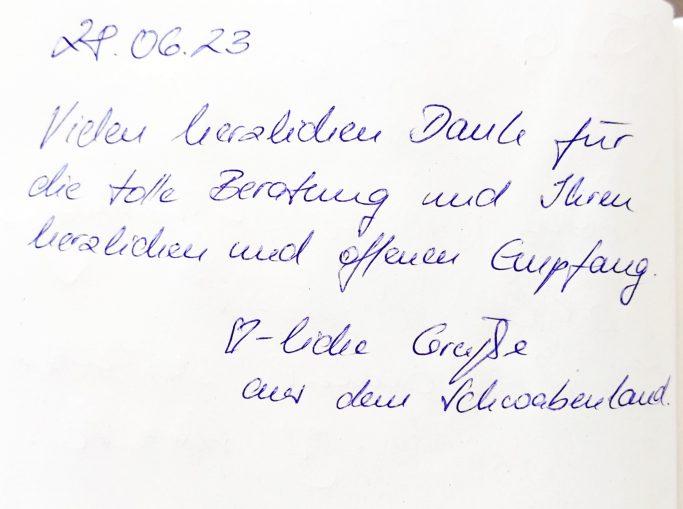 28.06.23
Vielen herzlichen Dank für
die tolle Beratung und Ihren
herzlichen und offenen Empfang.
♡-liche Grüße
aus dem Schwabenland.